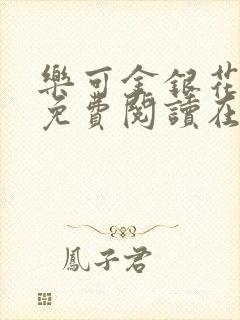 樂可金銀花
免費閱讀在
鳳子君